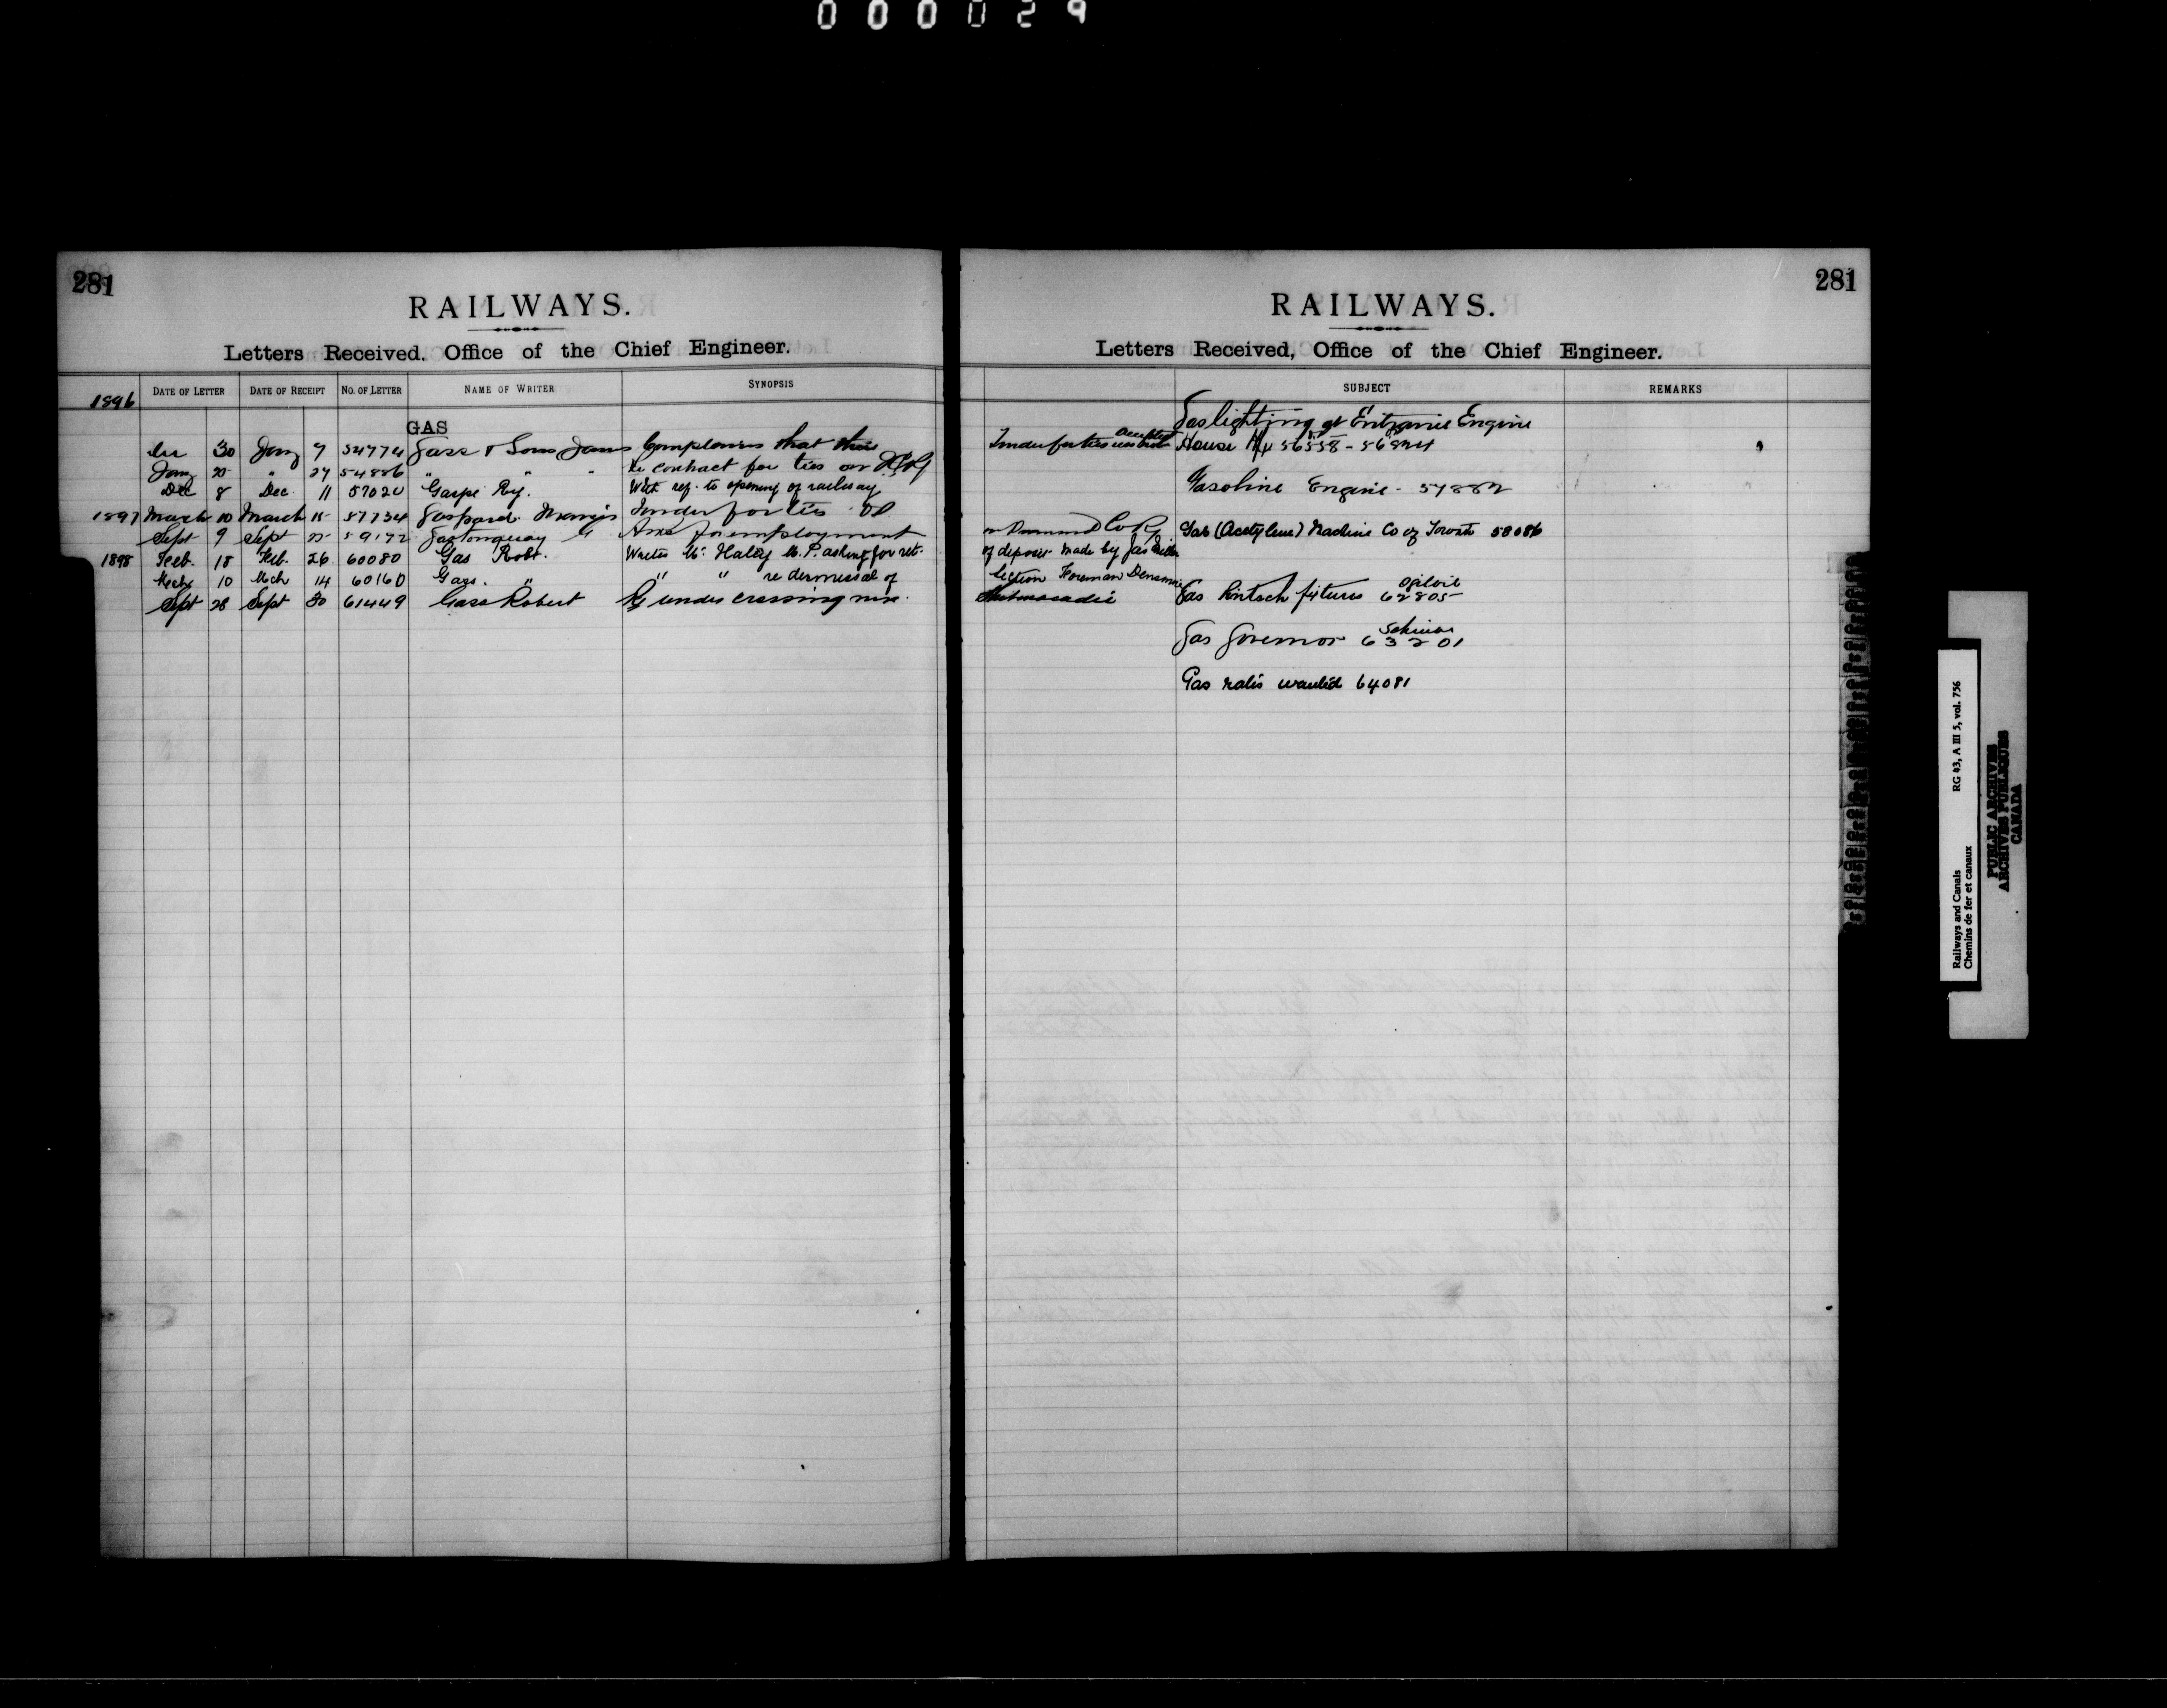 000029
281
RAILWAYS.
Letters Received. Office of the Chief Engineer.
1896 DATE OF LETTER DATE OF RECEIPT NO. OF LETTER NAME OF WRITER SYNOPSIS
GAS
30 Jany 7 54774 Gass & Sons James Complaines that their
Jany 20 " 27 54886 " " " Re contract for ties on
Dec 8 Dec. 11 57020 Gaspe Ry. With ref. to opening of railway
1897 March 10 March 15 57734 Gaspard Tender for ties
Sept 9 Sept 59172 Gastonguay G Asks for employment
1898 Feb. 18 Feb. 26 60080 Gas Robt. Writes Mr. Haley M.P. asking for ret.
Mch 10 Mch 14 60160 Gass. " " " re dismissal of
Sept 28 Sept 30 61449 Gass Robert under crossing
281
RAILWAYS.
Letters Received, Office of the Chief Engineer.
SUBJECT REMARKS
Gas lighting at Engine
Tender for ties accepted House 56558 -
Gasoline Engine - 57882
Gas (Acetylene) Machine Co of Toronto 58086
of deposit made by Jas
Section Foreman
Ogilvie
Gas Pintsch fixtures 62805
Gas Governor 63201
Gas rates wanted 64081
Railways and Canals RG 43, A III 5, vol. 756
Chemins de fer et canaux
PUBLIC ARCHIVES
ARCHIVES PUBLIQUES
CANADA